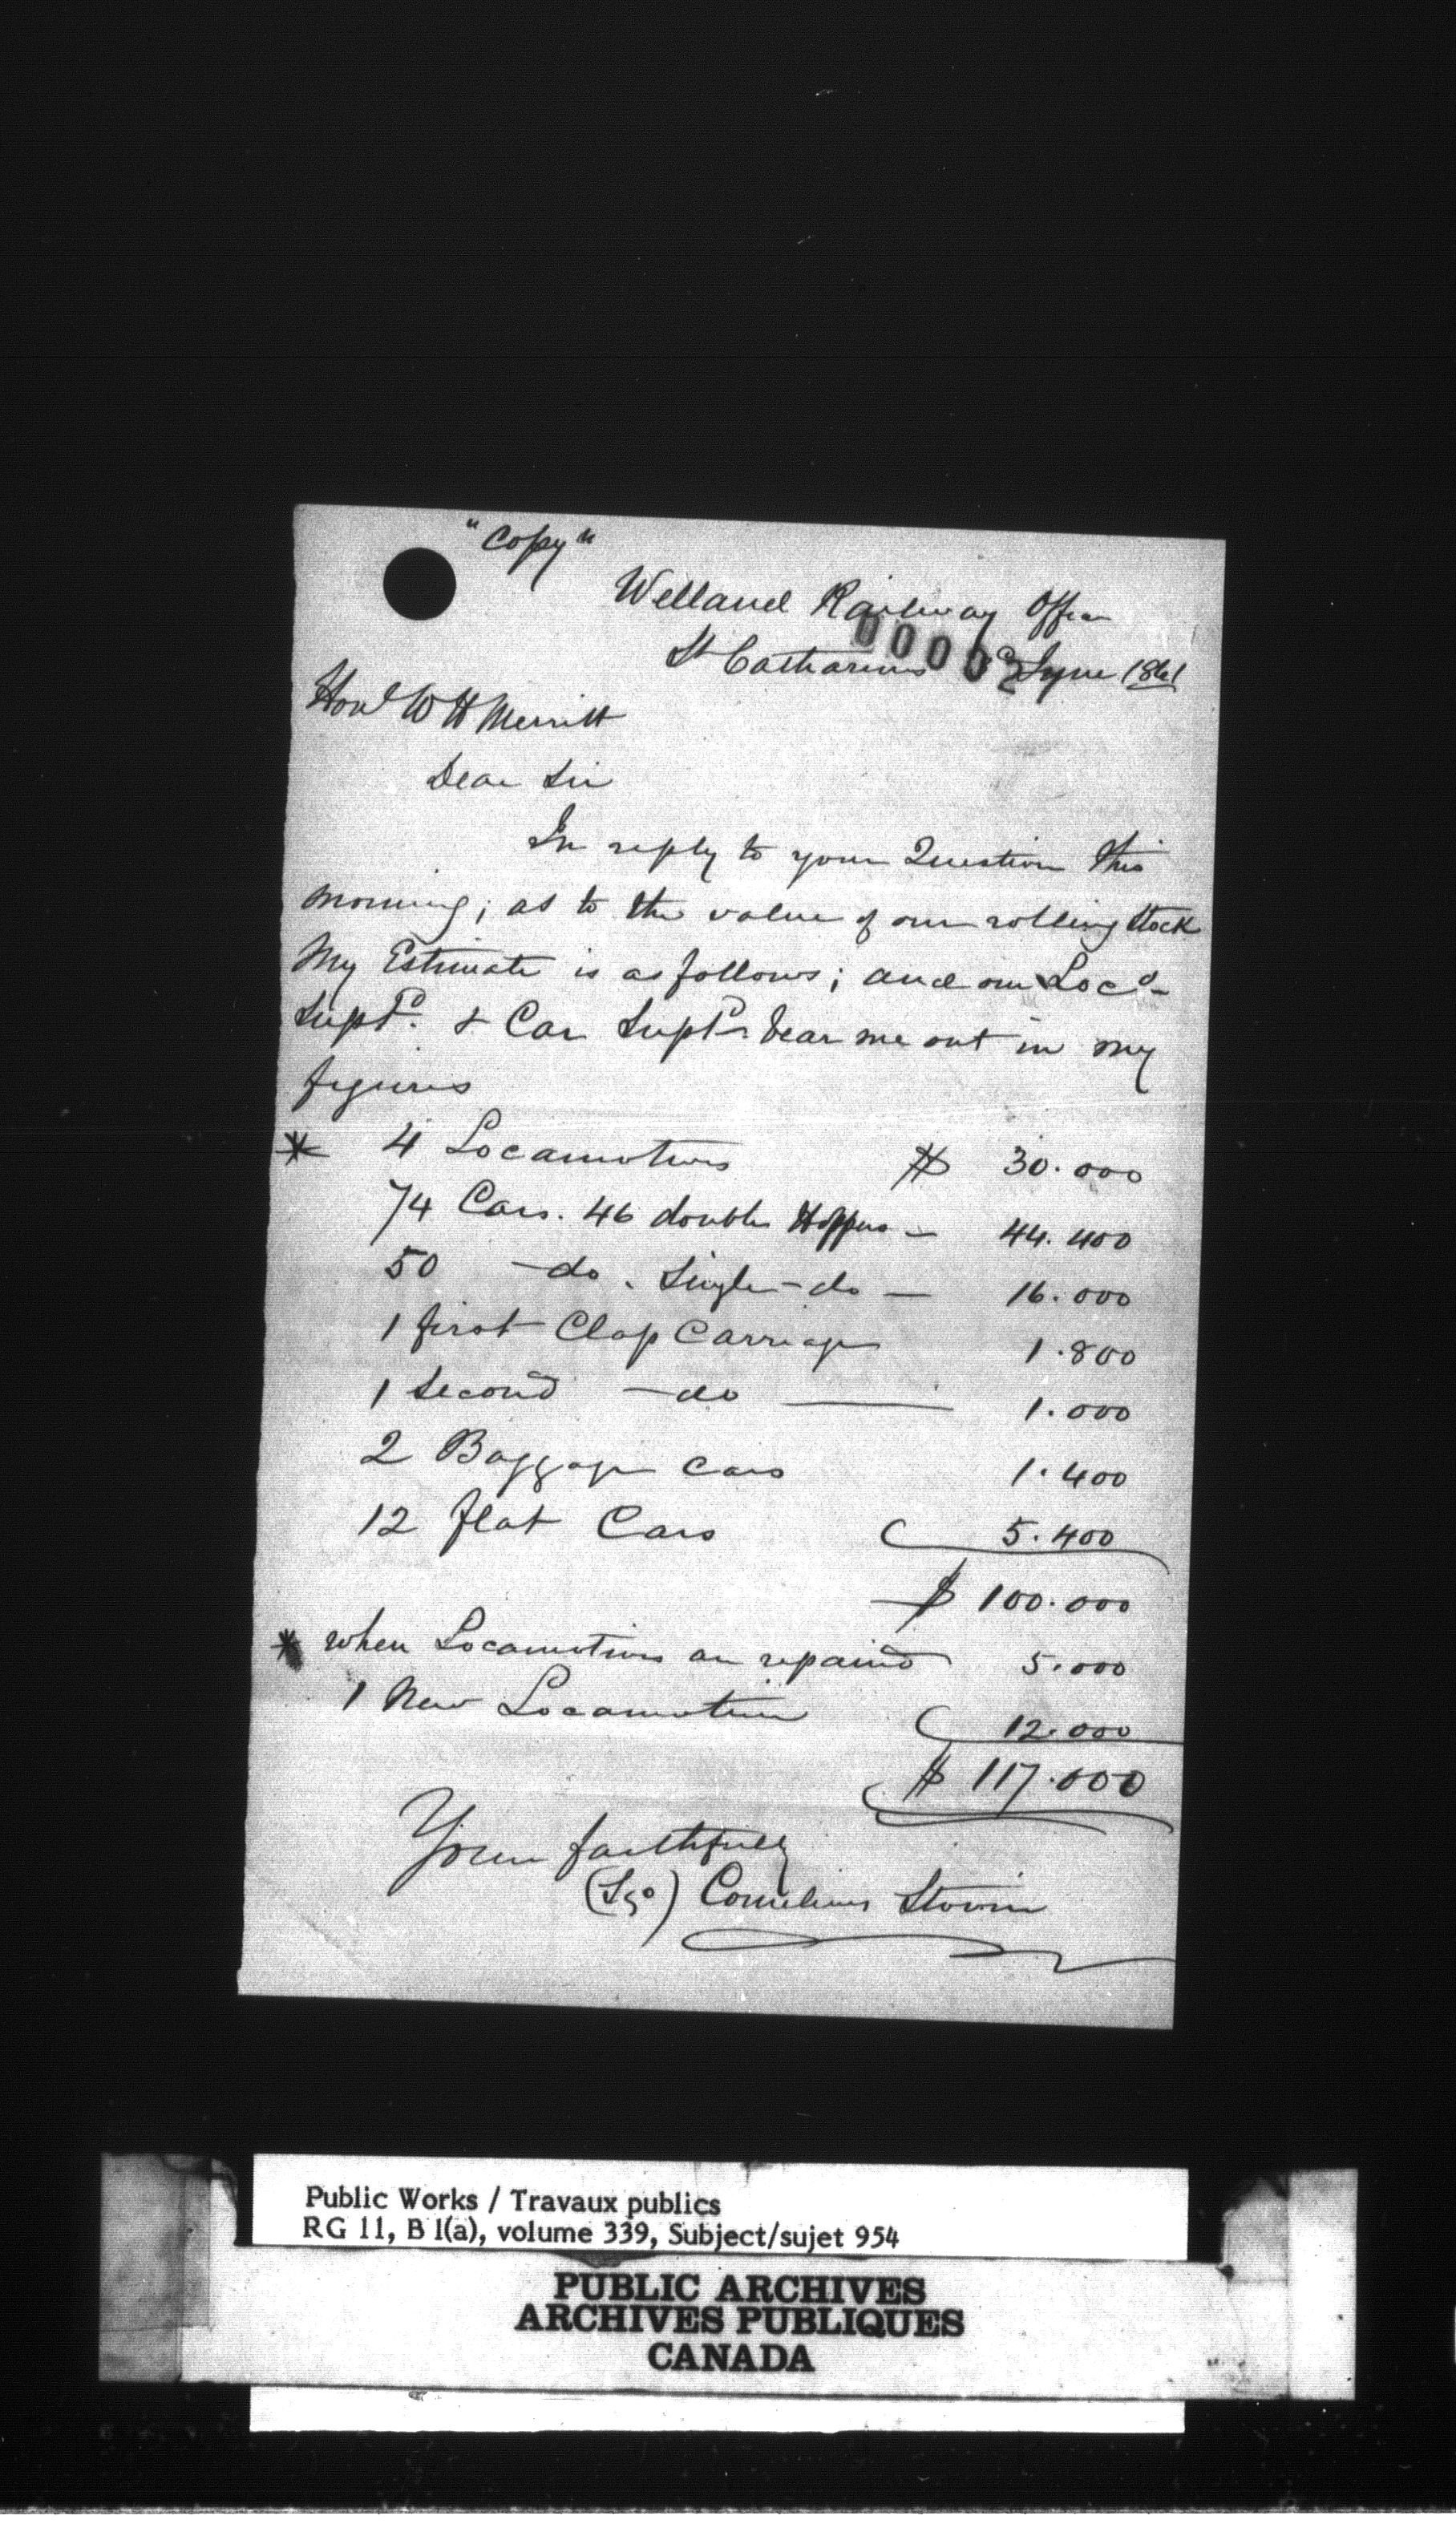 "Copy"
Welland Railway Office
St Catharines June 1861
0000
Honl W H Merritt
Dear Sir
In reply to your Question this
morning; as to the value of our rolling stock
My Estimate is as follows; and our Loco-
Supt. & Car Supt. bear me out in my
figures
* 4 Locomotives $ 30.000
74 Cars. 46 double Hoppers — 44.400
50 —do. Single —do — 16.000
1 first Class Carriage 1.800
1 Second —do —— 1.000
2 Baggage Cars 1.400
12 flat Cars 5.400
$ 100.000
* when Locomotives are repaired 5.000
1 New Locomotive 12.000
$ 117.000
Yours faithfully
(Sgd) Cornelius Stovin
Public Works / Travaux publics
RG 11, B 1(a), volume 339, Subject/sujet 954
PUBLIC ARCHIVES
ARCHIVES PUBLIQUES
CANADA